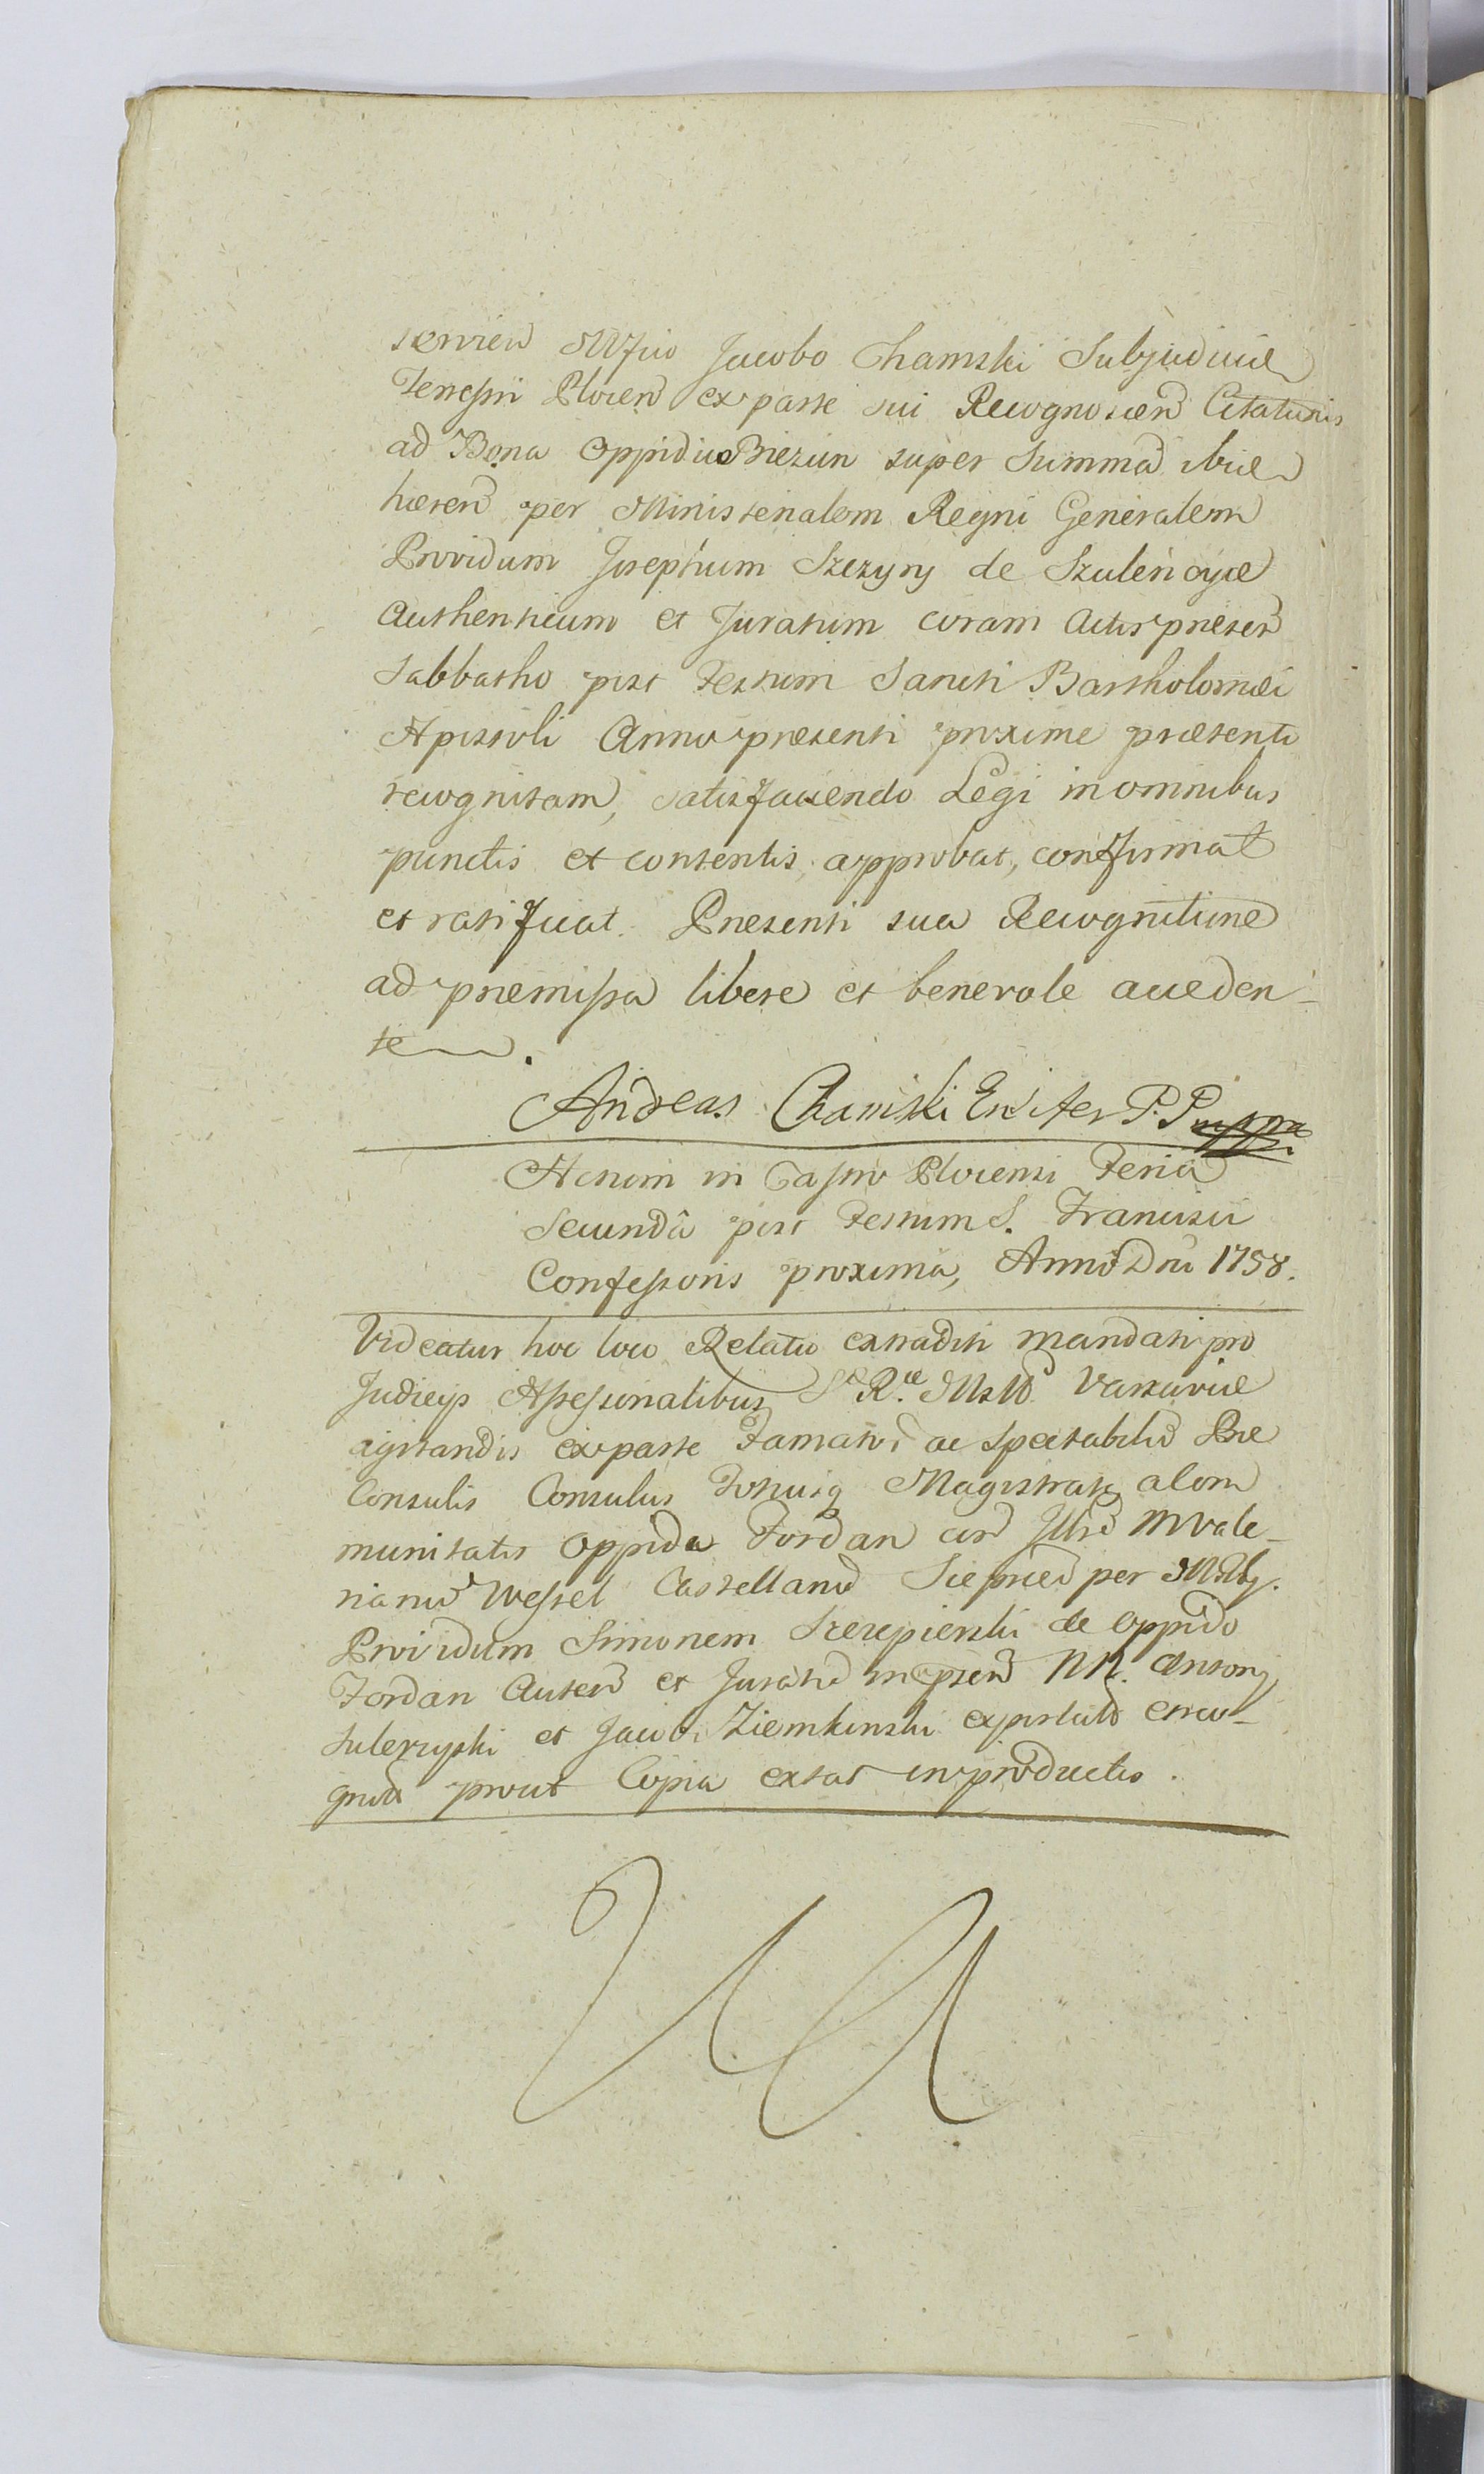 servien Mgfico Jacobo Chamski Subjudice
Terrestri Plocen ex parte sui Recognoscen Citationis
ad Bona Oppidu Biezun super Summa ibid
hæren per Ministerialem Regni Generalem
Providum Josephum Szczęsny de Szulenczyce
Authenticum et Juratum coram Actis præsen
Sabbatho post Festum Sancti Bartholomæi
Apostoli Anno præsenti proxime præsenti
recognitam, satisfaciendo Legi in omnibus
punctis et contentis, approbat, confirmat
et ratificat. Præsenti sua Recognitione
ad præmissa libere et benevole acceden-
te.
Andreas Chamski
Actum in Castro Plocensi Feria
Secunda post Festum S. Francisci
Confessoris proxima, Anno Dni 1758.
Videatur hoc loco Relatio extraditi mandati pro
Judicijs Assessorialibus S. R. Mttis Varsaviæ
agitandis ex parte Famator ac Spectabiliu Præ
Consulis Consulus Totiusq Magistratq a Com
munitatis Oppidi Fordan cir Illre M Vale-
rianu Wessel Castellanu Sieprcen per
Providum Simonem Szczepienski de Oppido
Fordan Auten et Juratu in præsen NN. Antonij
et Jacobi Ziemkinski expostulato
prout Copia extat in productis.